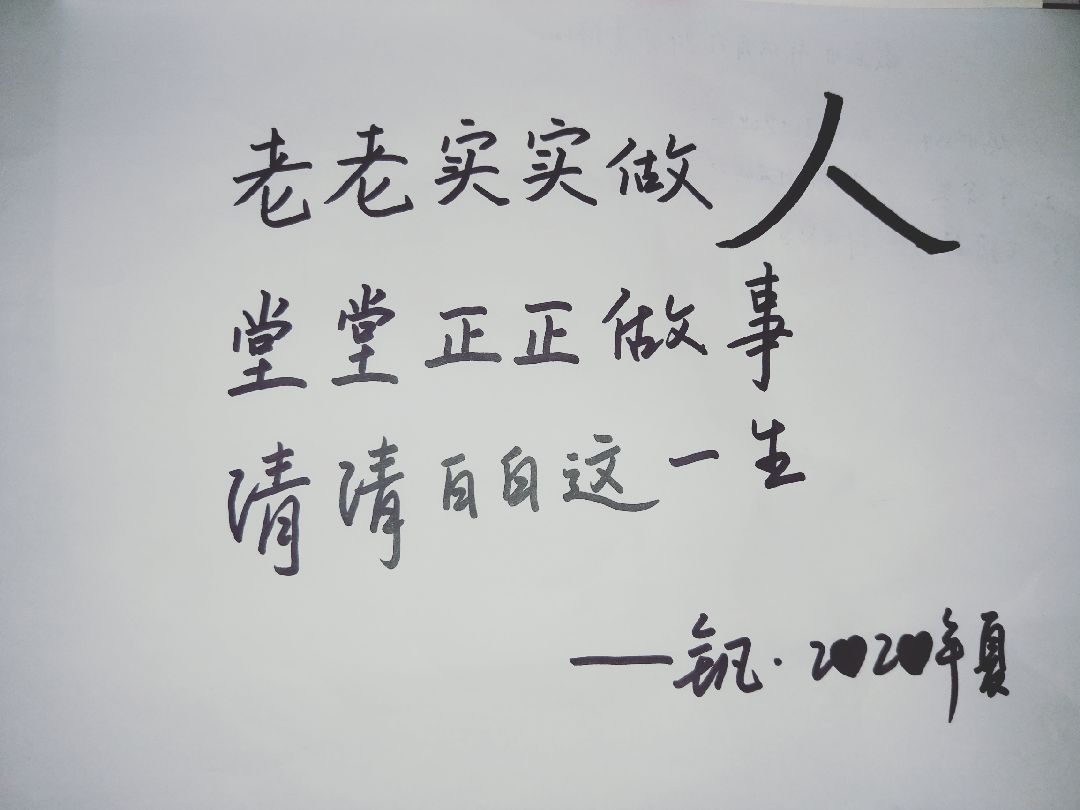 老老实实做人
堂堂正正做事
清清白白这一生
——钒·2020年夏